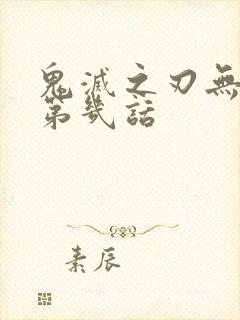 鬼滅之刃無
第幾話
素辰